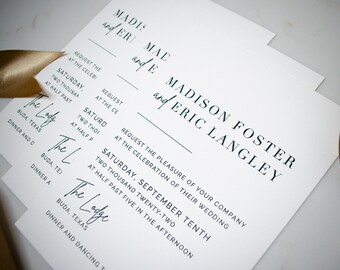 MADIS
and ER
REQUEST THE
AT THE CELEBR
SATURDAY
TWO THOUSAN
AT HALF PAST
The Lodg
BUDA, TEXAS
DINNER AND D
MAD
and E
REQUEST
AT THE CE
SATUR
TWO THOU
AT HALF
The L
BUDA, TEX
DINNER A
MADISON FOSTER
and ERIC LANGLEY
REQUEST THE PLEASURE OF YOUR COMPANY
AT THE CELEBRATION OF THEIR WEDDING
SATURDAY, SEPTEMBER TENTH
TWO THOUSAND TWENTY-TWO
AT HALF PAST FIVE IN THE AFTERNOON
The Lodge
BUDA, TEXAS
DINNER AND DANCING